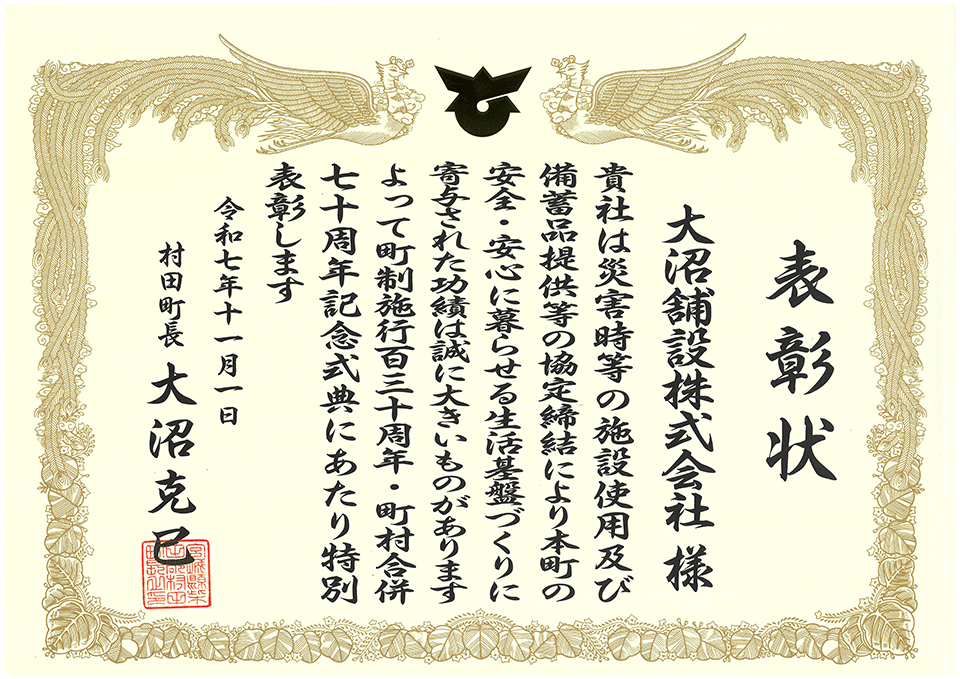 表彰状
大沼舗設株式会社 様
貴社は災害時等の施設使用及び
備蓄品提供等の協定締結により本町の
安全・安心に暮らせる生活基盤づくりに
寄与された功績は誠に大きいものがあります
よって町制施行百三十周年・町村合併
七十周年記念式典にあたり特別
表彰します
令和七年十一月一日
村田町長 大沼克巳